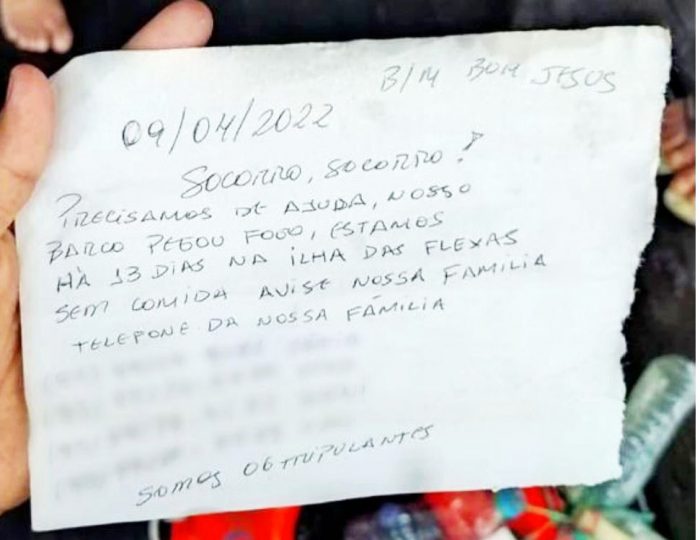 B/M BOM JESUS
09/04/2022
SOCORRO, SOCORRO!
PRECISAMOS DE AJUDA, NOSSO
BARCO PEGOU FOGO, ESTAMOS
HÀ 13 DIAS NA ILHA DAS FLEXAS
SEM COMIDA AVISE NOSSA FAMILIA
TELEPONE DA NOSSA FÁMILIA
SOMOS 06 TRIPULANTES